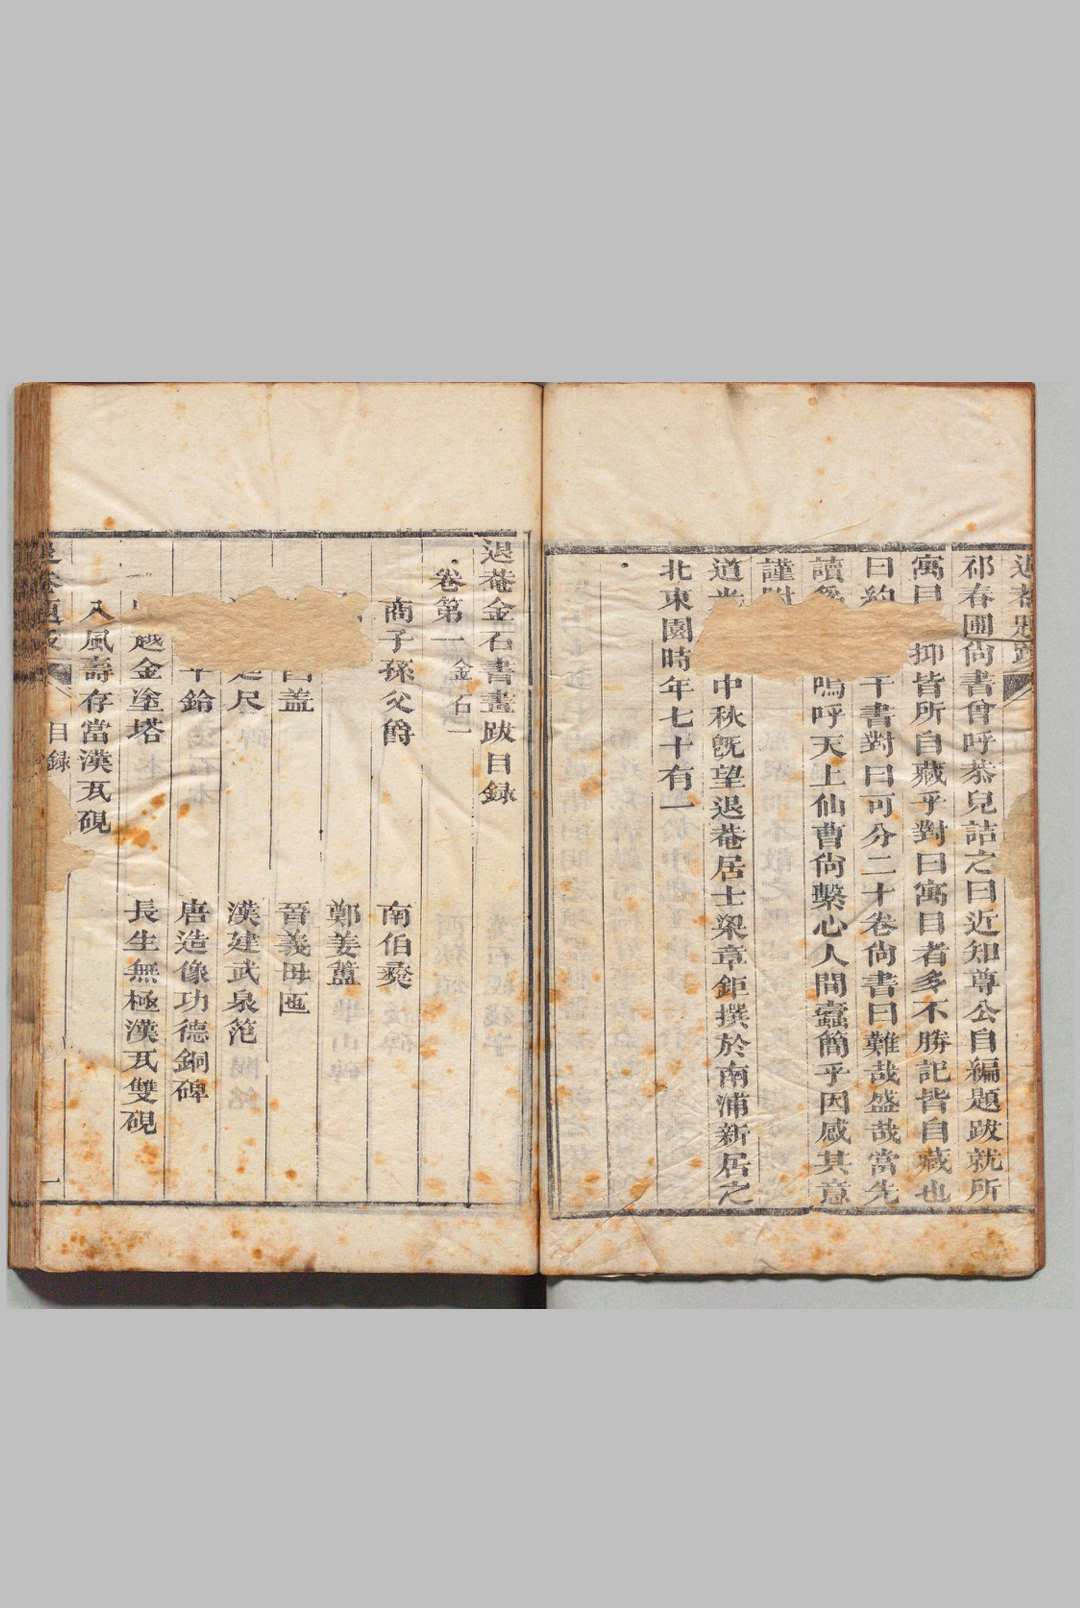 祁春圃尙書曾呼恭兒詰之曰近知尊公自編題跋就所
寓目 抑皆所自藏乎對曰寓目者多不勝記皆自藏也
曰約 干書對曰可分二十卷尙書曰難哉盛哉當先
讀爲 嗚呼天上仙曹尙繫心人間蠹簡乎因感其意
謹附
道光 中秋旣望退菴居士梁章鉅撰於南浦新居之
北東園時年七十有一
退菴金石書畫跋目録
卷第一 金石一
商子孫父爵 南伯彝
鄭姜簠
蓋 晉義母匜
尺 漢建武泉范
鈴 唐造像功德銅碑
越金塗塔 長生無極漢瓦雙硯
八風壽存當漢瓦硯
目録 一